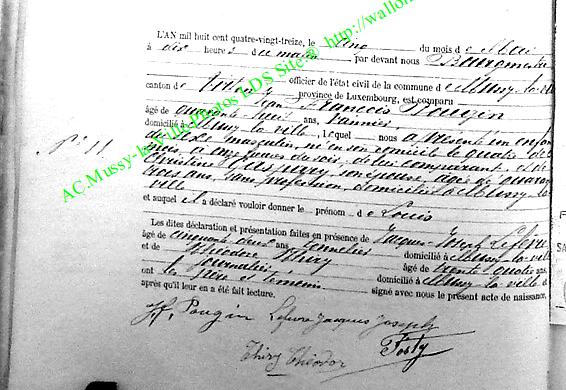 L'AN mil huit cent quatre-vingt-treize, le Cinq du mois de Mai
à dix heures du matin par devant nous Bourgmestre
officier de l'état civil de la commune de Mussy-la-Ville
canton de Virton province de Luxembourg, est comparu
Jean François Pougin
âgé de quarante huit ans, vannier
domicilié à Mussy la ville, lequel nous a présenté un enfant
du sexe masculin, né en son domicile le quatre de ce
mois à onze heures du soir, de lui comparant, et de
Christine son épouse, âgée de quarante
trois ans, sans profession, domiciliée à Mussy-la-
ville
et auquel il a déclaré vouloir donner le prénom de Louis
Les dites déclaration et présentation faites en présence de Jacques-Joseph Lefevre
âgé de cinquante deux ans domicilié à Mussy-la-ville
et de Théodore Thiry âgé de trente quatre ans
journalier, domicilié à Mussy-la-ville
ont les père et témoins signé avec nous le présent acte de naissance,
après qu'il leur en a été fait lecture.
Jf. Pougin Lefevre Jacques Joseph
Thiry Théodor Fosty
N° 11
AC.Mussy-la-Ville-Photos LDS Site® http://wallon